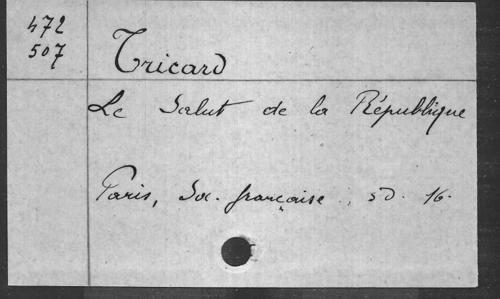 472
507
Tricard
Le Salut de la République
Paris, Soc. française, sd. 16.